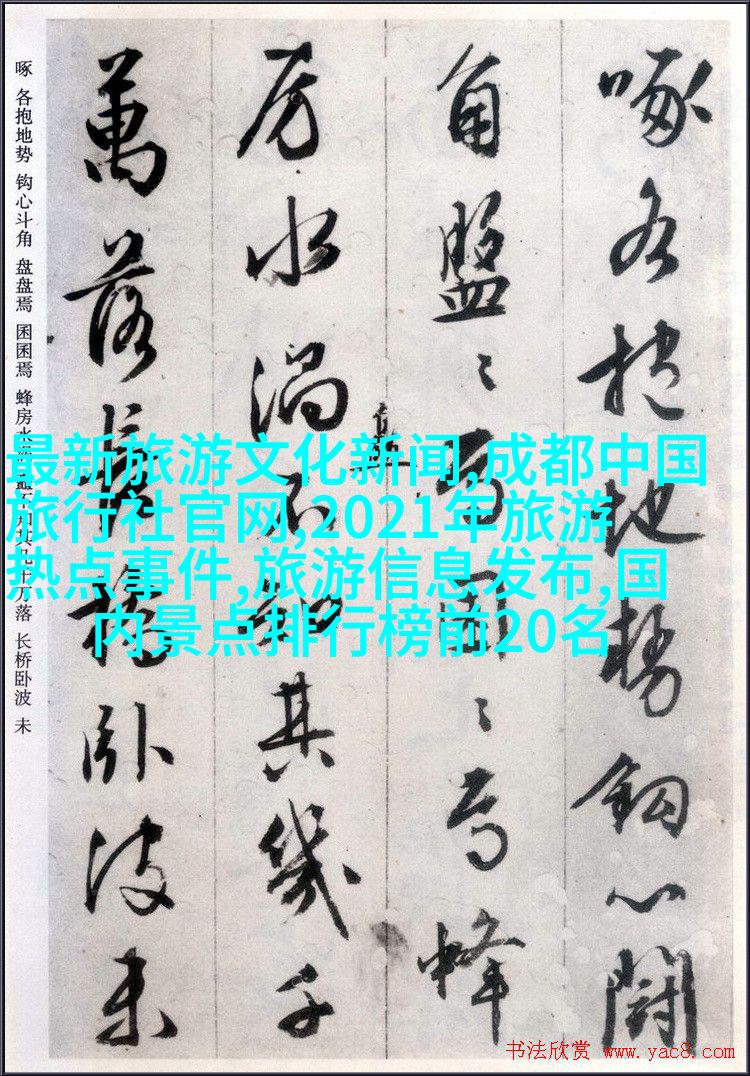 啄各抱地势钩心闘
角盤〻焉囷〻焉蜂
房水渦不知其幾千
萬落長橋卧波未
啄 各抱地势 钩心斗角 盘盘焉 囷囷焉 蜂房水
落 长桥卧波 未
最新旅游文化新闻,成都中国
旅行社官网,2021年旅游
热点事件,旅游信息发布,国
内景点排行榜前20名
书法欣赏 www.yac8.com